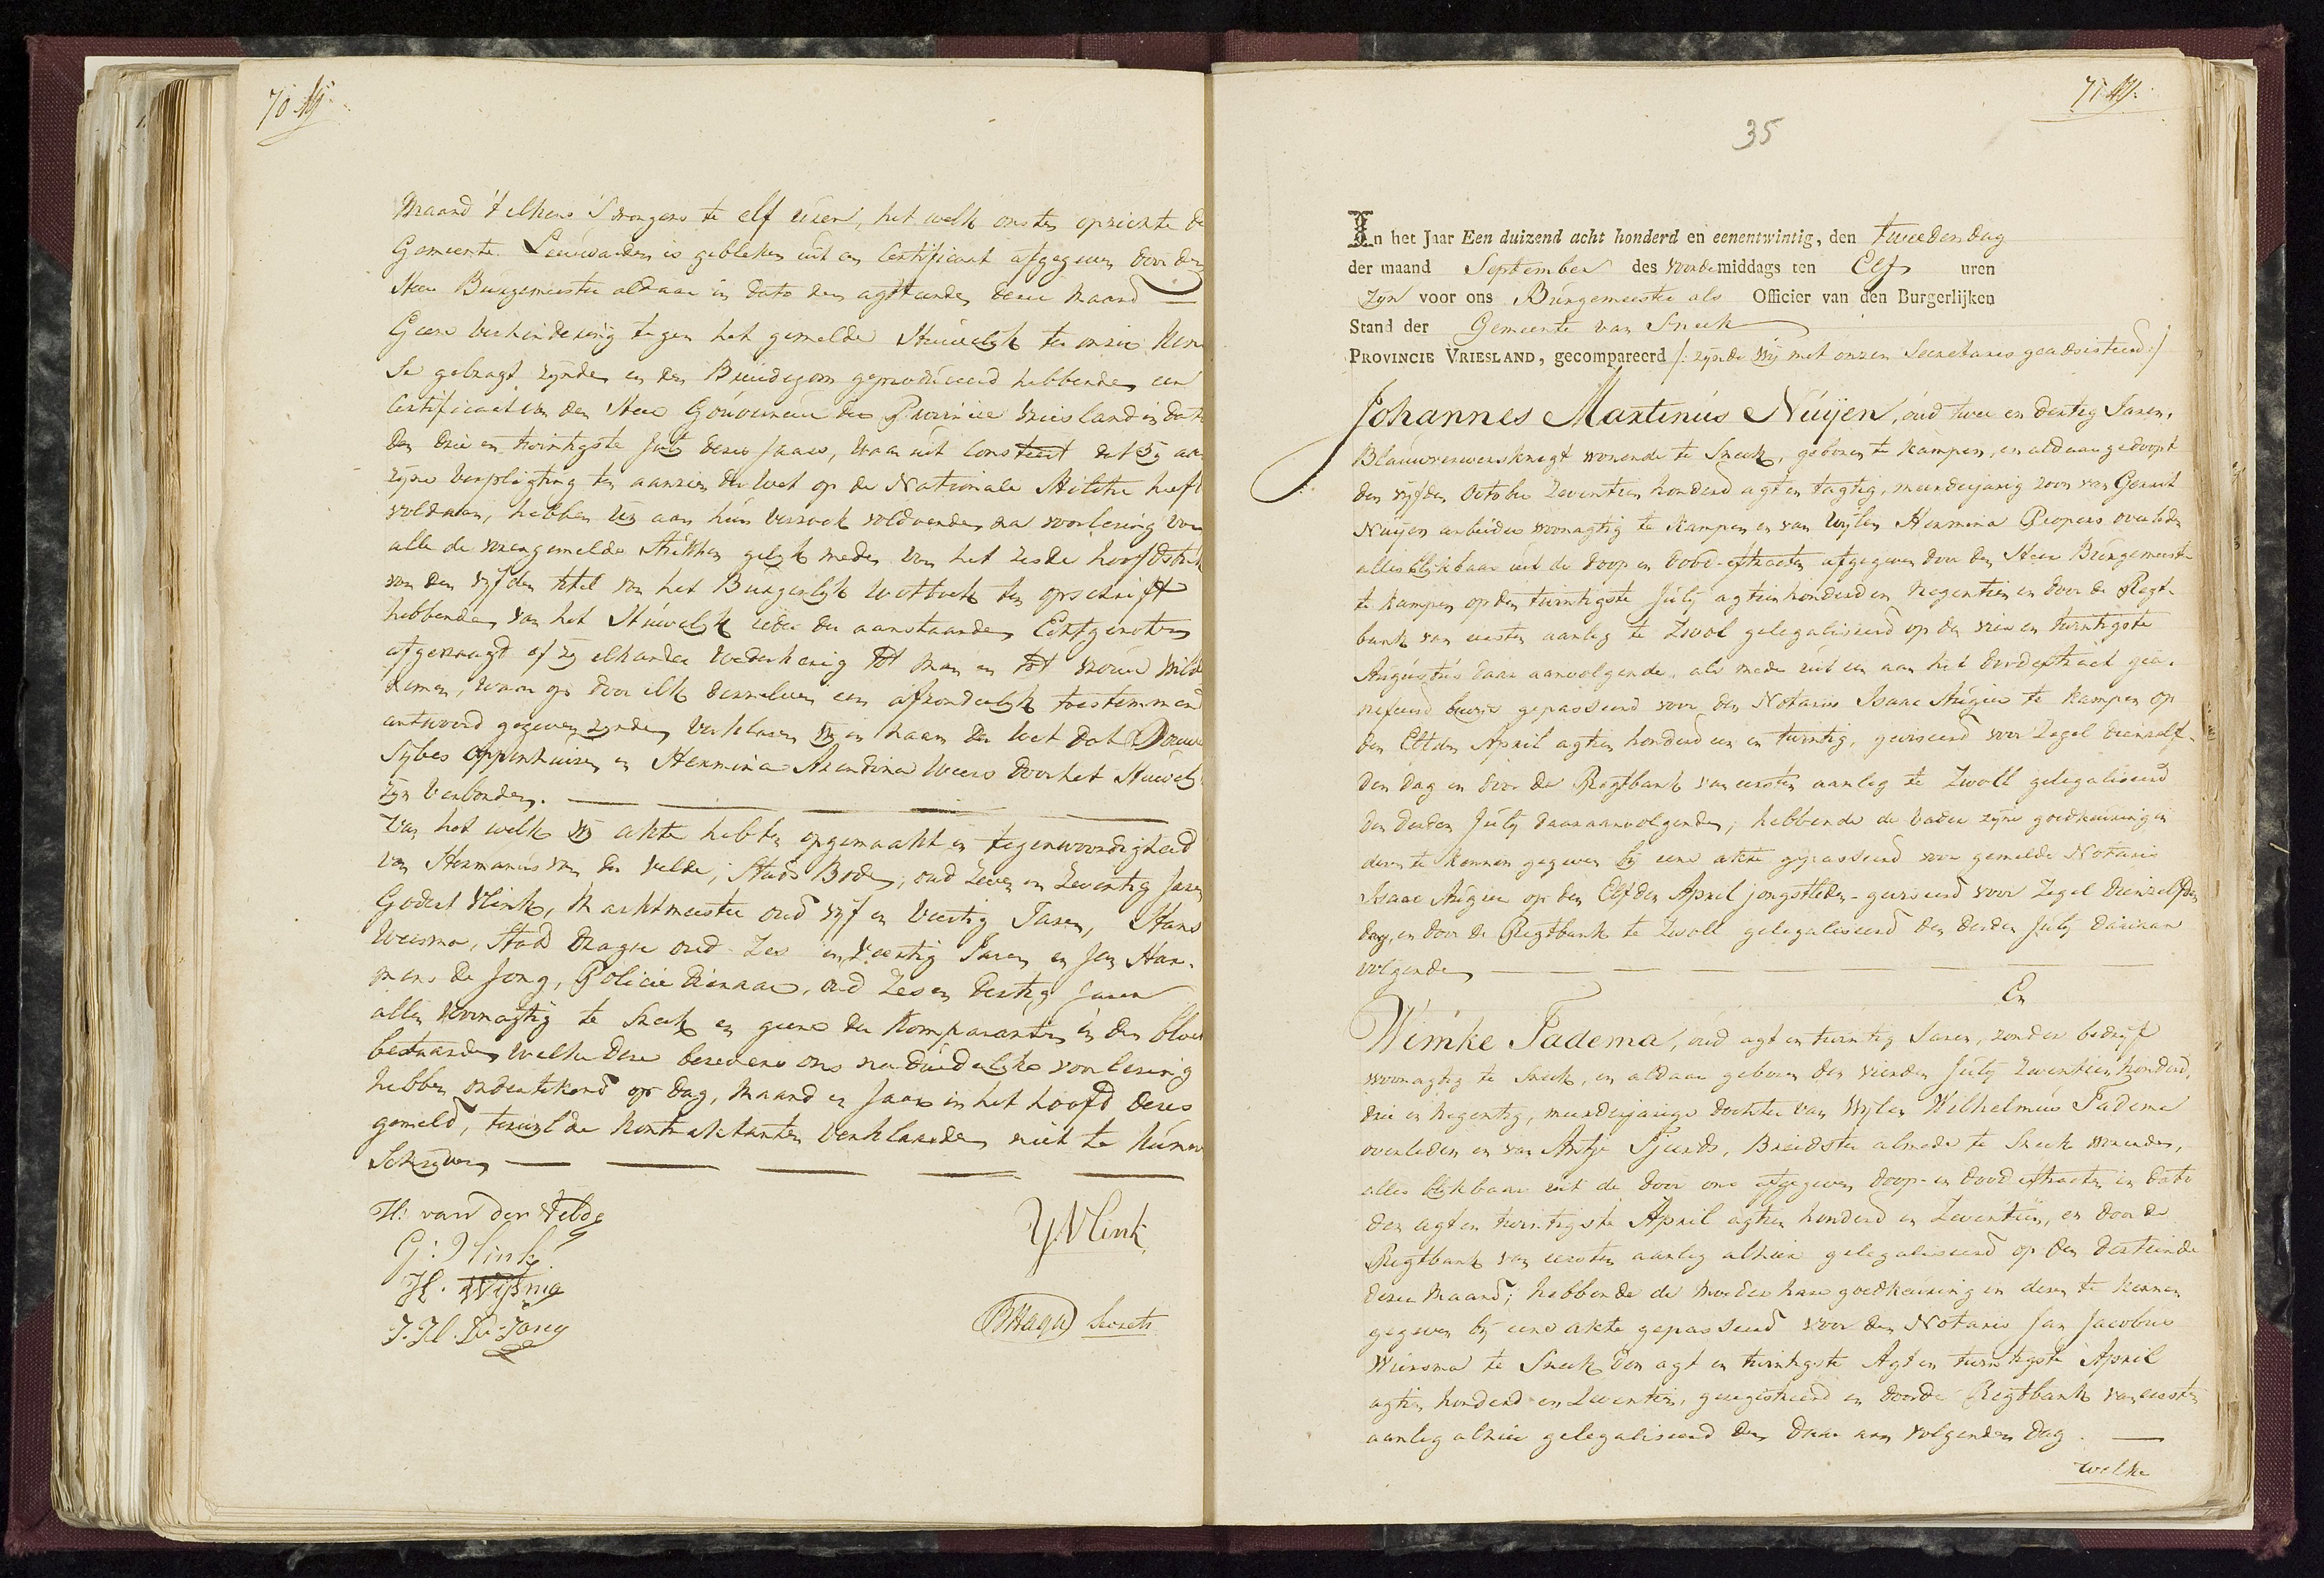 70
Maand telkens s'morgens te elf uren, het welk ons ten opzichte de
Gemeente Leeuwarden is gebleken uit een Certificaat afgegeven door den
Heer Burgemeester aldaar in dato den agttienden dezer maand
Geene verhindering tegen het gemelde Huwelyk ter onzer kenn
se gebragt zynde, en den Bruidegom geproduceerd hebbende een
Certificaat van den Heer Gouverneur der Provincie Vriesland in dato
den drie en twintigste July dezes Jaars, waar uit consteert dat zy aan
zyne verpligting ten aanzien der Wet op de Nationale Militie heeft
voldaan, hebben wy aan hun verzoek voldoende na voorlezing van
alle de voorengemelde stukken gelyk mede van het zesde hoofdstuk
van den vyfden titel van het Burgerlyk Wetboek ten opschrift
hebbende van het Huwelyk ieder der aanstaande Echtgenoten
afgevraagd of zy elkander wederkerig tot man en tot vrouw wilde
nemen, waar op door elk derzelven een afzonderlyk toestemmend
antwoord gegeven zynde, verklaren wy in naam der Wet dat Douwe
Sybes Oppenhuizen en Hermina Arendina Weers door het Huwelyk
zyn verbonden.
Van het welk wy akte hebben opgemaakt in tegenwoordigheid
van Hermanus van der Velde, Stads Bode, oud zeven en zeventig Jaren
Godert Vlink, Marktmeester oud vyf en veertig Jaren, Hans
Weisma, Stads drager oud zes en veertig Jaren en Jan Har-
mens de Jong, Policie dienaar, oud zes en dertig Jaren
allen woonagtig te Sneek en geene der Komparanten in den bloede
bestaande, welke deze benevens ons na duidelyke voorlezing
hebben ondertekend op dag, maand en Jaar in het hoofd dezes
gemeld, terwyl de Kontraktanten verklaarden niet te kunnen
Schryven
H: van der Velde
G: Vlink
H. Wijsma
J. H. De Jong
Y Vlink
Haga Secrets
71
35
In het Jaar Een duizend acht honderd en eenentwintig, den tweeden dag
der maand September des voordemiddags ten Elf uren
zyn voor ons Burgemeester als Officier van den Burgerlijken
Stand der Gemeente van Sneek
PROVINCIE VRIESLAND, gecompareerd /: zynde wy met onzen Secretaris geadsisteerd :/
Johannes Martinus Nuijen, oud twee en dertig Jaren,
Blauwverwersknegt wonende te Sneek, geboren te Kampen, en aldaar gedoopt
den vyfden October zeventien honderd agt en tagtig, meerderjarig zoon van Gerrit
Nuijen arbeider woonagtig te Kampen en van wylen Hermina Piepers overleden
alles blykbaar uit de doop en dood-extracten afgegeven door den Heer Burgemeester
te Kampen op den twintigste July agttien honderd en negentien en door de Regt-
bank van eersten aanleg te Zwol gelegaliseerd op den vier en twintigste
Augustus daar aanvolgende, als mede uit een aan het doodextract gea-
nexeerd bewys gepasseerd voor den Notaris Isaac Augier te Kampen op
den Elfden April agttien honderd een en twintig, geviseerd voor Zegel dienzelf-
den dag en door de Regtbank van eersten aanleg te Zwoll gelegaliseerd
den derden July daaraanvolgende; hebbende de vader zyne goedkeuring in
dezen te kennen gegeven by eene akte gepasseerd voor gemelde Notaris
Isaac Augier op den Elfden April jongstleden - geviseerd voor Zegel dienzelfden
dag, en door de Regtbank te Zwoll gelegaliseerd den derden July daaraan
volgende
En
Wimke Tadema, oud agt en twintig Jaren, zonder bedryf
woonagtig te Sneek, en aldaar geboren den vierden July zeventien honderd,
drie en negentig, meerderjarige dochter van wylen Wilhelmus Tadema
overleden en van Antje Sjuerds, Breidster almede te Sneek wonende,
alles blykbaar uit de door ons afgegeven doop- en doodextracten in dato
den agt en twintigste April agttien honderd en zeventien, en door de
Regtbank van eersten aanleg alhier gelegaliseerd op den dertiende
dezer maand; hebbende de moeder hare goedkeuring in dezen te kennen
gegeven by eene akte gepasseerd voor den Notaris Jan Jacobus
Wiersma te Sneek den agt en twintigste Agt en twintigste April
agttien honderd en zeventien, geregistreerd en door de Regtbank van eersten
aanleg alhier gelegaliseerd den daar aan volgenden dag.
welke